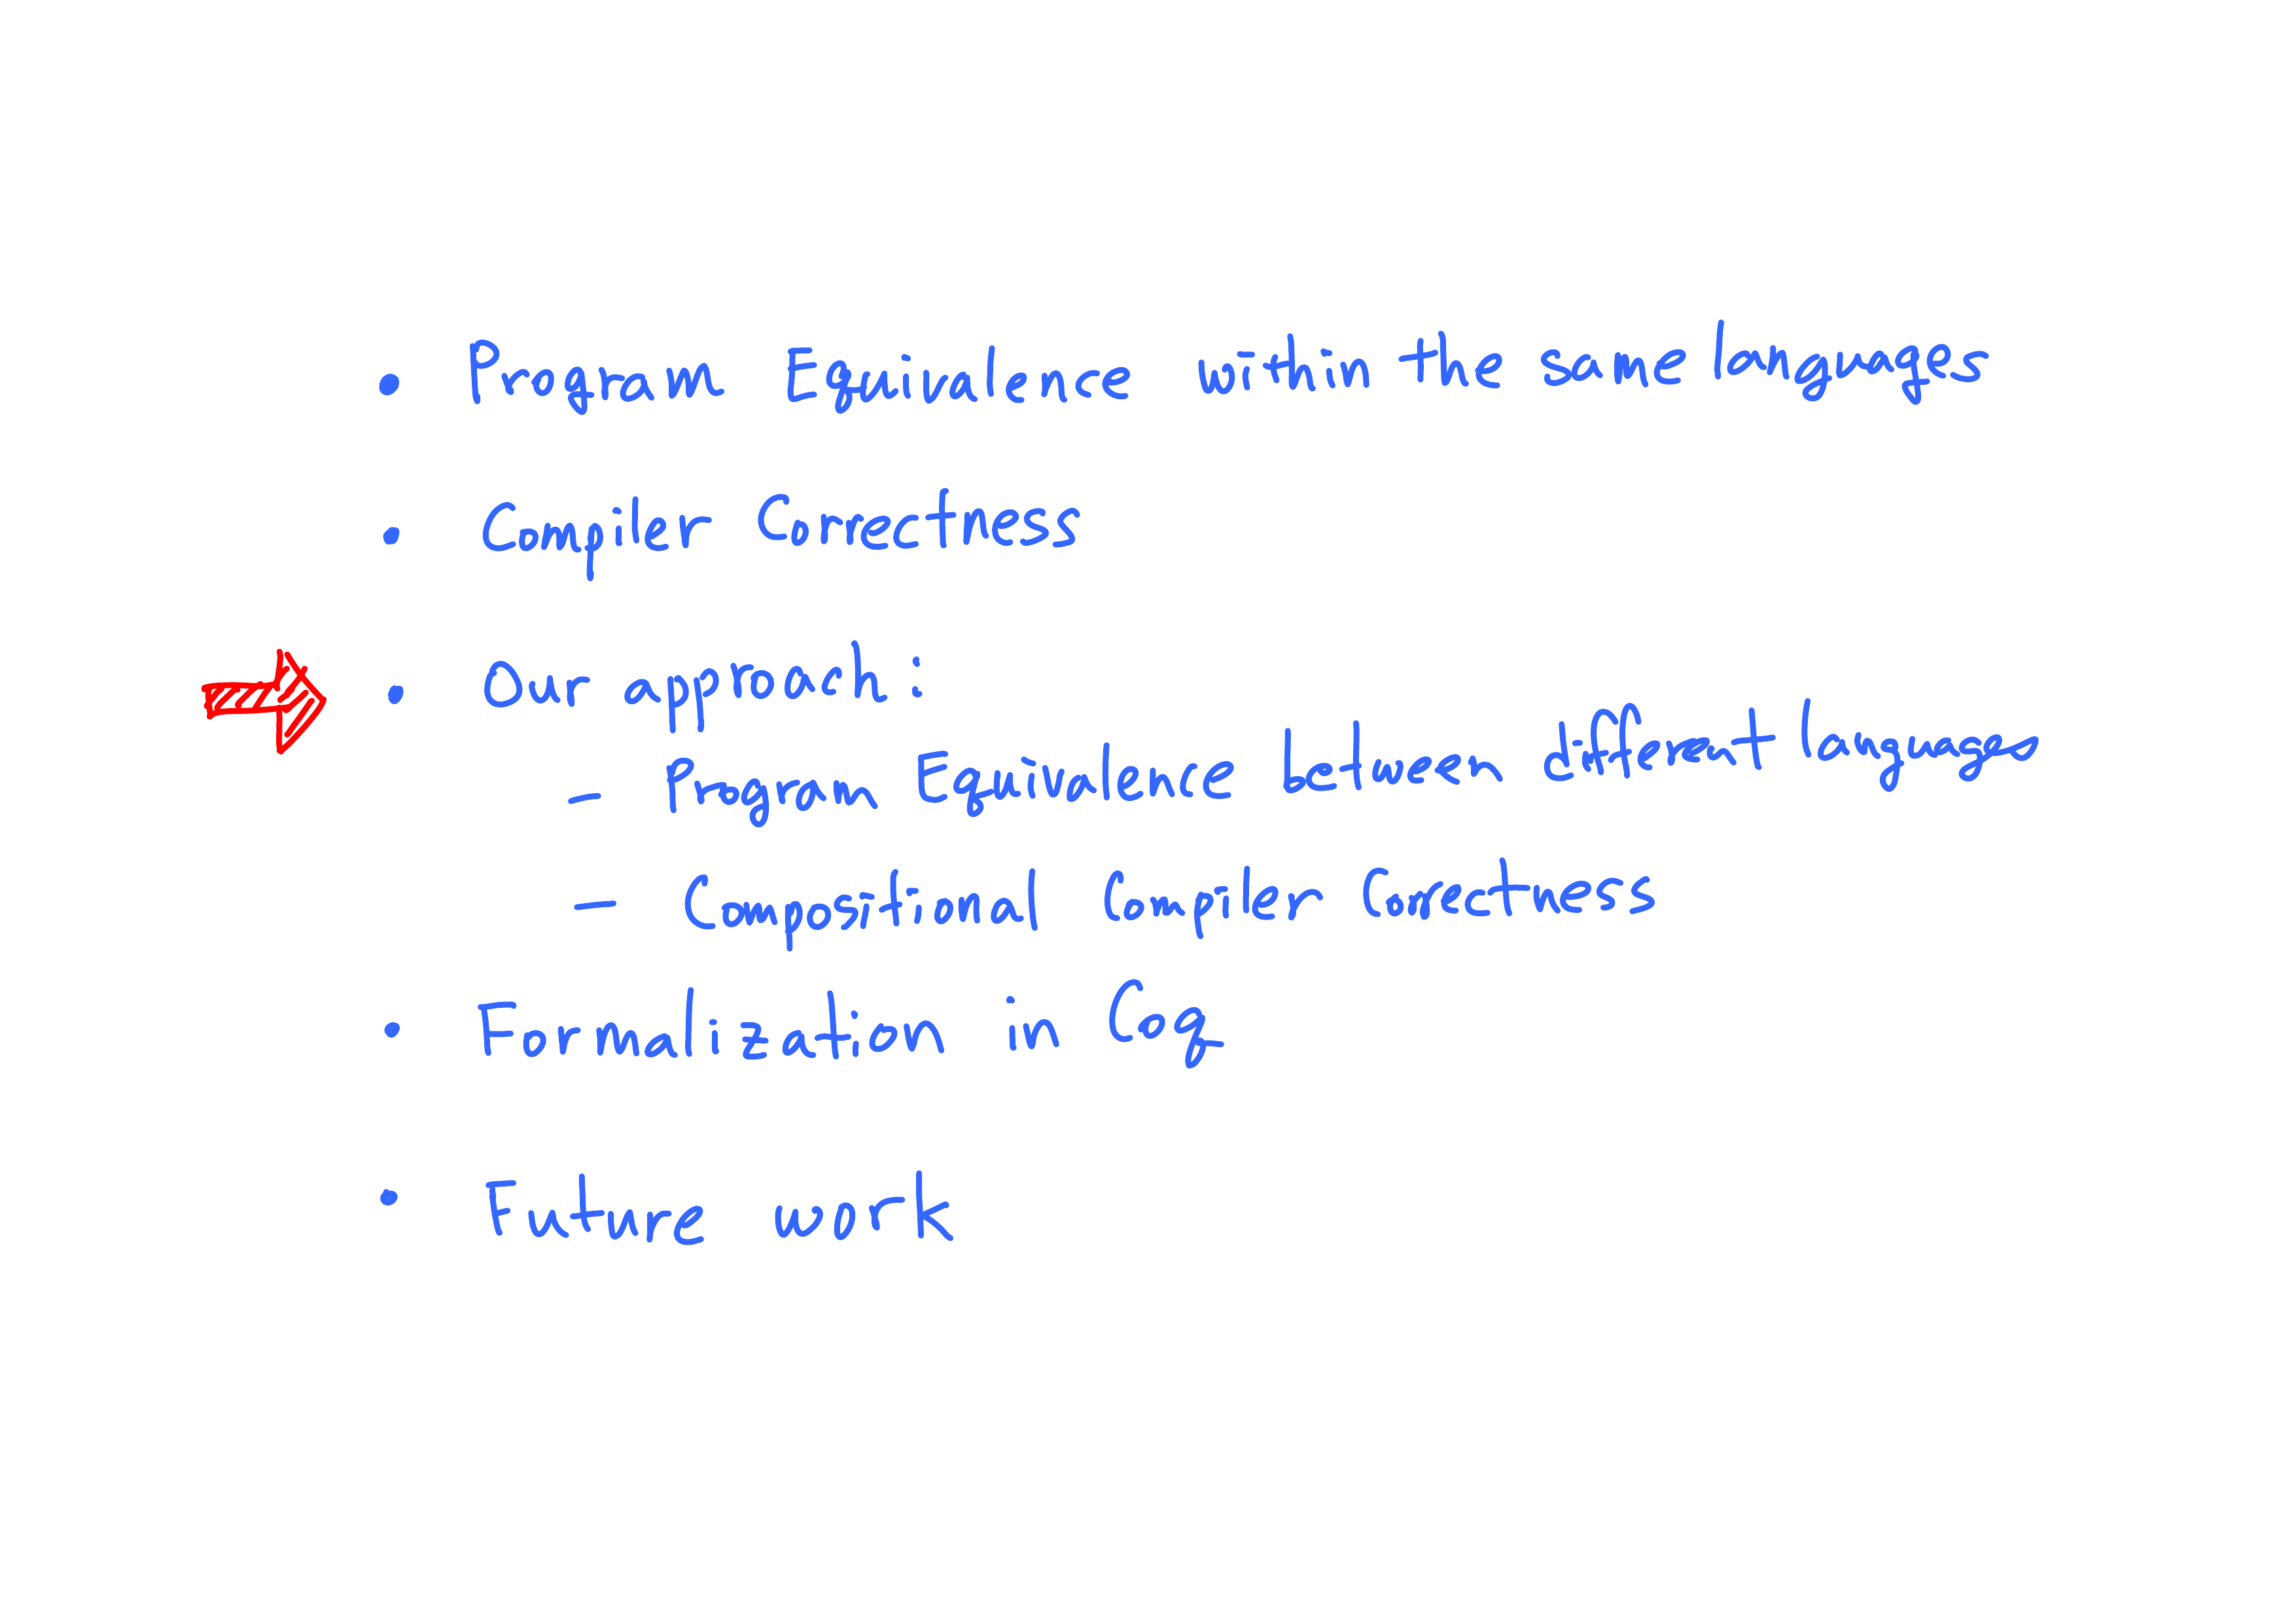 • Program Equivalence within the same languages
• Compiler Correctness
• Our approach:
– Program Equivalence between different languages
– Compositional Compiler Correctness
• Formalization in Coq
• Future work